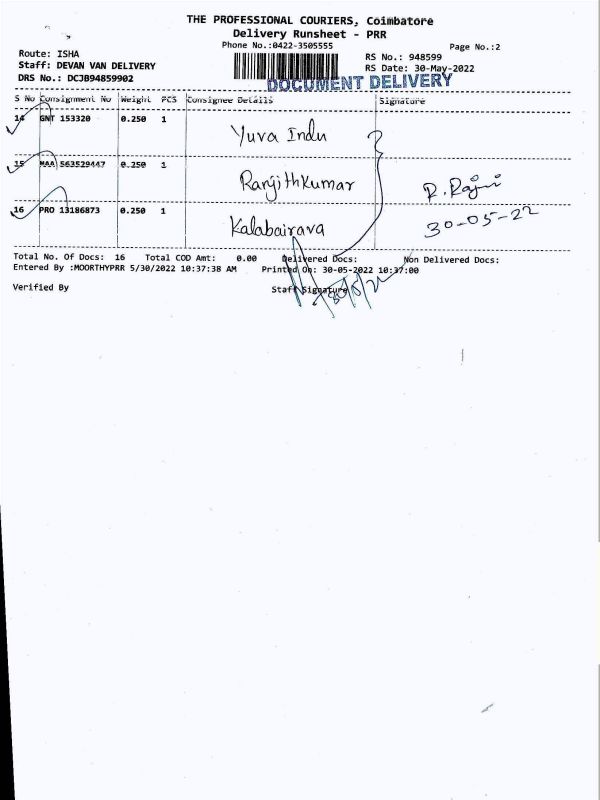 THE PROFESSIONAL COURIERS, Coimbatore
Delivery Runsheet - PRR
Phone No.:0422-3505555
Page No.:2
Route: ISHA
RS No.: 948599
Staff: DEVAN VAN DELIVERY
RS Date: 30-May-2022
DRS No.: DCJB94859902
DOCUMENT DELIVERY
S No Consignment No Weight PCS Consignee Details Signature
14 GNT 153320 0.250 1 Yuva Indu
15 MAA 563529447 0.250 1 Ranjithkumar R. Rajni
16 PRO 13186873 0.250 1 Kalabairava 30-05-22
Total No. Of Docs: 16 Total COD Amt: 0.00 Delivered Docs: Non Delivered Docs:
Entered By :MOORTHYPRR 5/30/2022 10:37:38 AM Printed On: 30-05-2022 10:37:00
Verified By Staff Signature